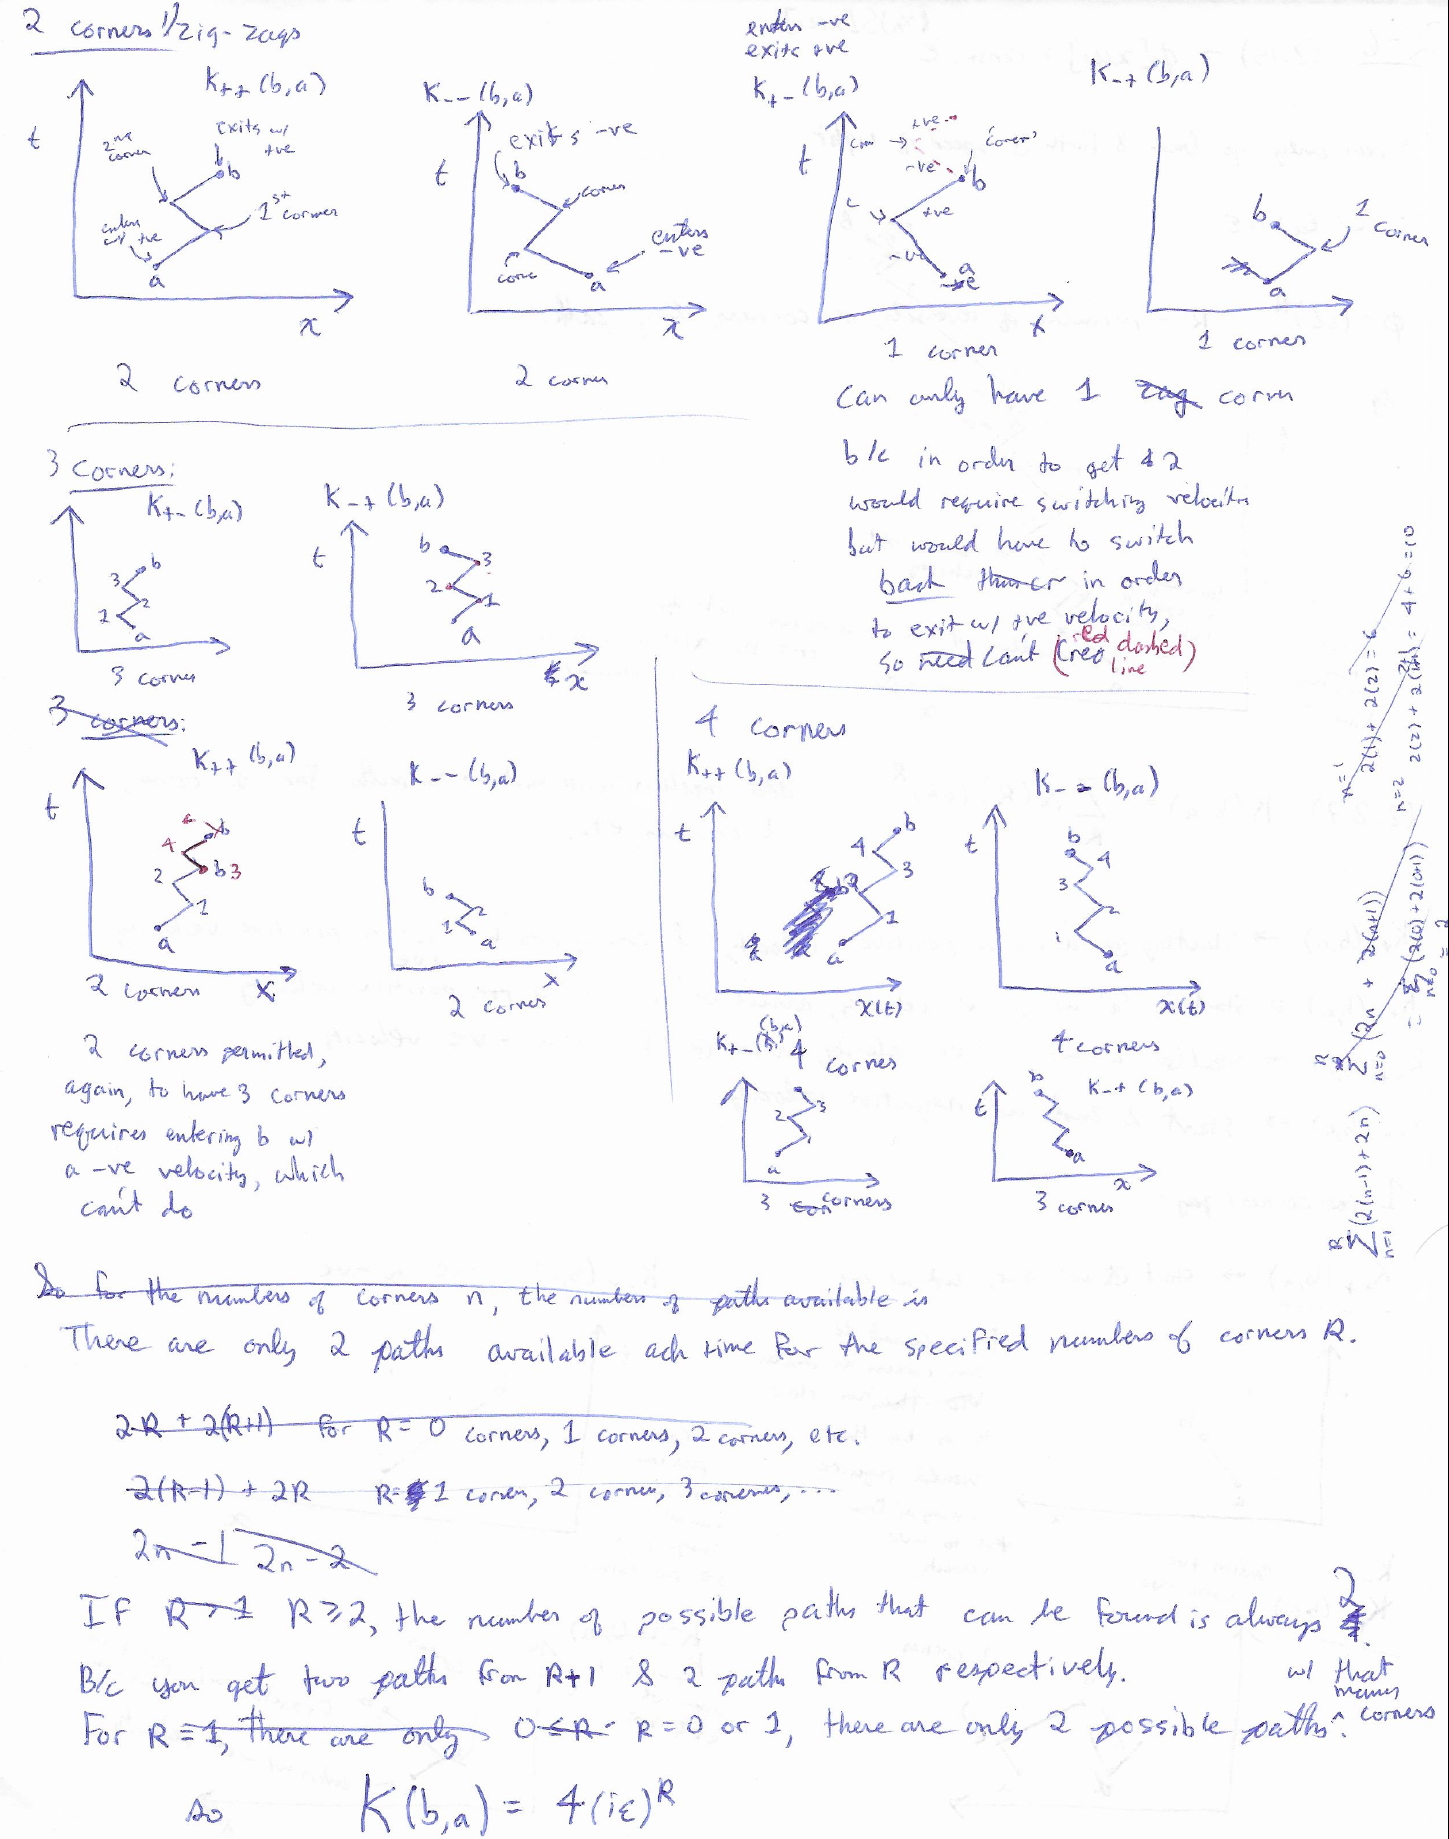 2 corners/zig-zags
K++(b,a)
t
2nd corner
exits w/ +ve
b
1st corner
enters w/ +ve
a
x
2 corners
K--(b,a)
t
exits -ve
b
corner
enters -ve
corne
a
x
2 corner
enters -ve
exits +ve
K+-(b,a)
t
+ve
-ve
corner
b
+ve
-ve
a
x
1 corner
K-+(b,a)
b
1 corner
a
1 corner
Can only have 1 zag corner
b/c in order to get 2
would require switching velocity
but would have to switch
back in order
to exit w/ +ve velocity,
so need can't (red dashed line)
3 Corners:
K+-(b,a)
b
3
2
1
a
3 corner
K-+(b,a)
t
b
3
2
1
a
x
3 corners
3 corners:
K++(b,a)
t
b
4
b 3
2
1
a
x
2 corners
K--(b,a)
t
b
2
1
a
x
2 corner
2 corners permitted,
again, to have 3 corners
requires entering b w/
a -ve velocity, which
can't do
4 corners
K++(b,a)
t
b
4
3
1
a
x(t)
K--(b,a)
t
b
4
3
2
1
a
x(t)
4 corners
K+-(b,a)
4 corners
3
2
1
a
3 corners
K-+(b,a)
t
b
a
x
3 corner
n=1
2(1)+2(2)=6
n=2
2(2)+2(2+1)=4+6=10
Σ n=0 (2n + 2(n+1))
= Σ n=0 (2(0)+2(0+1)) = 2
R Σ n=1 (2(n-1)+2n)
So for the numbers of corners n, the numbers of paths available is
There are only 2 paths available ach time for the specified numbers of corners R.
2R + 2(R+1) for R=0 corners, 1 corners, 2 corners, etc.
2(R-1) + 2R R=1 corner, 2 corner, 3 corners, ...
2n-1 2n-2
If R>1 R≥2, the number of possible paths that can be found is always 2.
B/c you get two paths from R+1 & 2 paths from R respectively.
w/ that many corners
For R=1, there are only 0≤R R=0 or 1, there are only 2 possible paths.
so K(b,a) = 4(iε)^R